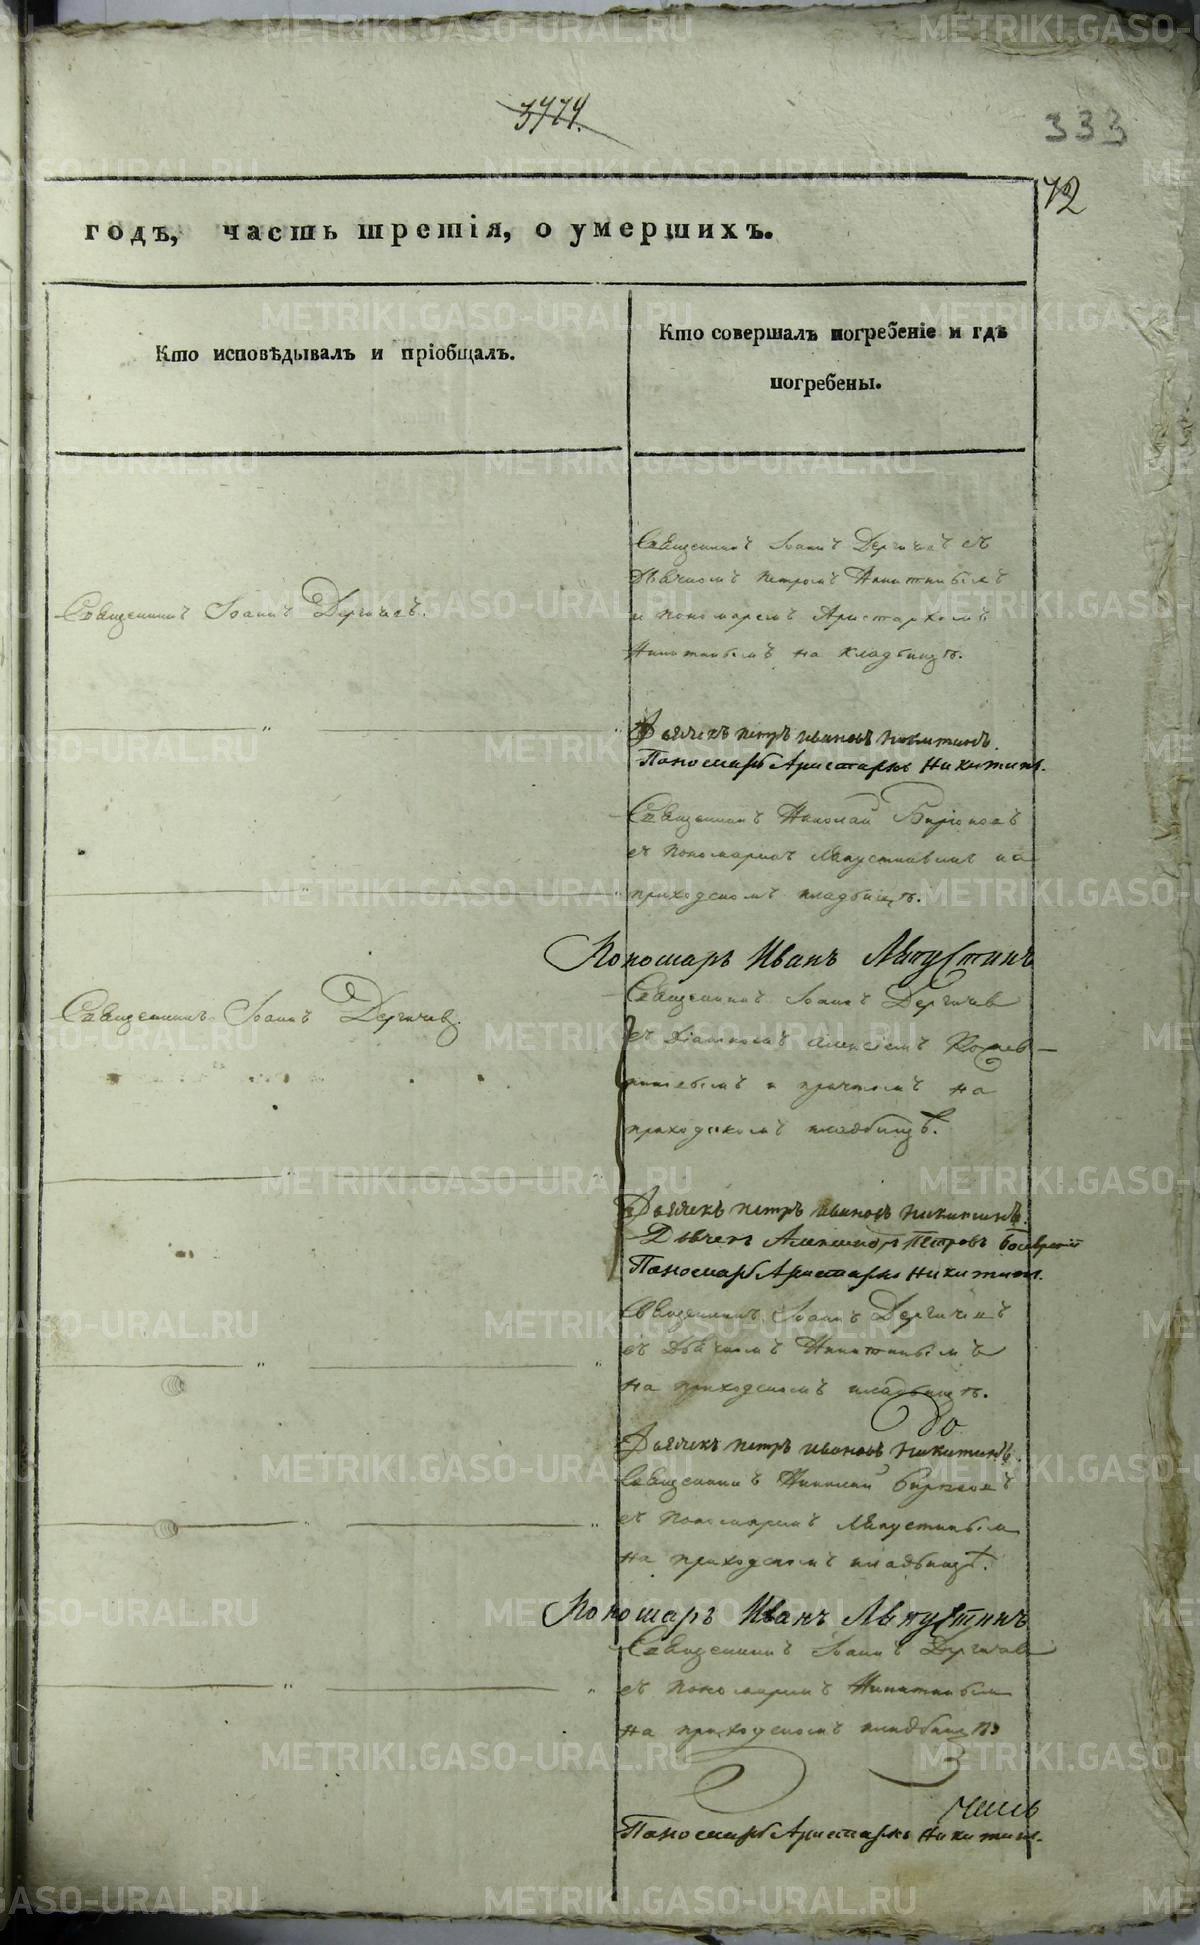 3474.
333
72
годъ, часть третія, о умершихъ.
Кто исповѣдывалъ и пріобщалъ.
Кто совершалъ погребеніе и гдѣ
погребены.
Священникъ Іоаннъ Дергачевъ съ
Дьячкомъ Петромъ Никитинымъ
Священникъ Іоаннъ Дергачевъ.
и пономаремъ Аристархомъ
Никитинымъ на кладбищѣ.
Дьячекъ петръ ивановъ Никитинъ.
Пономарь Аристархъ Никитинъ.
Священникъ Николай Бирюковъ
съ пономаремъ Лапустинымъ на
приходскомъ кладбищѣ.
Пономарь Иванъ Лапустинъ
Священникъ Іоаннъ Дергачев
Священникъ Іоаннъ Дергачев.
съ Діакономъ Алексіемъ
и причтомъ на
приходскомъ кладбищѣ.
Дьячекъ петръ ивановъ никитинъ.
Дьячекъ Александръ Петровъ
Пономарь Аристархъ Никитин.
Священникъ Іоаннъ Дергачевъ
съ Дьячкомъ Никитинымъ
на приходскомъ кладбищѣ.
До
Дьячекъ петръ ивановъ никитинъ.
Священникъ Николай Бирюковъ
съ пономаремъ Лапустинымъ
на приходскомъ кладбищѣ.
Пономарь Иванъ Лапустинъ
Священникъ Іоаннъ Дергачев
съ пономаремъ Никитинымъ
на приходскомъ кладбищѣ
Пономарь Аристархъ Никитин.
METRIKI.GASO-URAL.RU